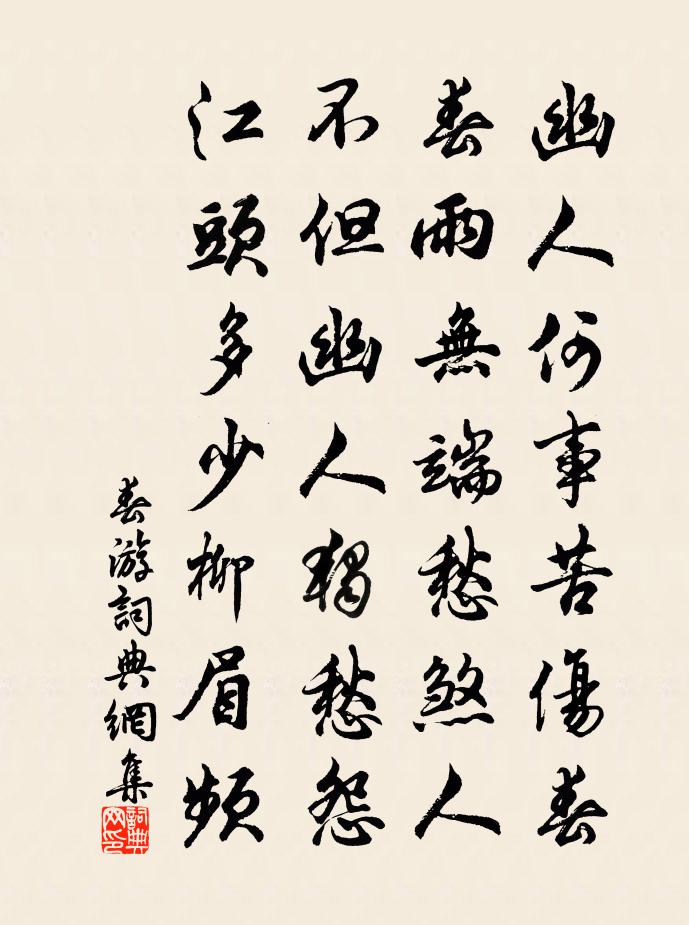 幽人何事苦傷春
春雨無端愁煞人
不但幽人獨愁怨
江頭多少柳眉頻
春游詞典網集
詞典網印